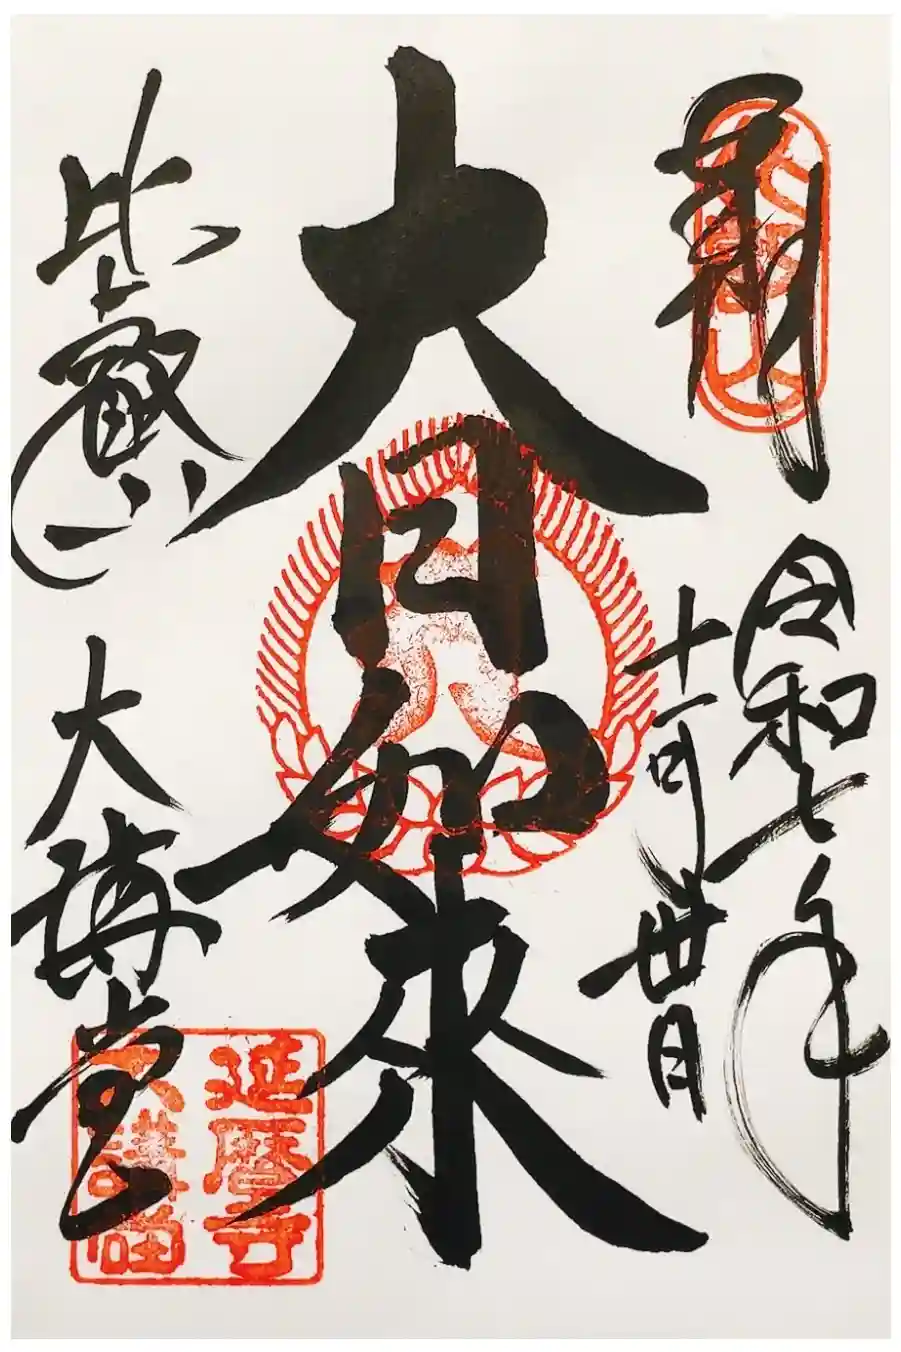 奉拝
令和七年
十一月丗日
大日如来
比叡山
大講堂
延暦寺
大講堂